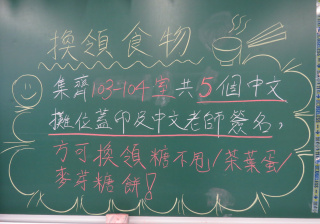 換領食物
集齊103-104室共5個中文
攤位蓋印及中文老師簽名，
方可換領糖不甩/茶葉蛋/
麥芽糖餅!